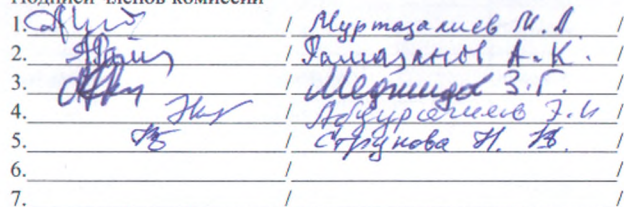 Подписи членов комиссии
1. / Муртазалиев М. А. /
2. / Рамазанов А. К. /
3. / Меджидов З. Г. /
4. / Абдурагиев Э. И /
5. / Струкова Н. В. /
6. / /
7. / /